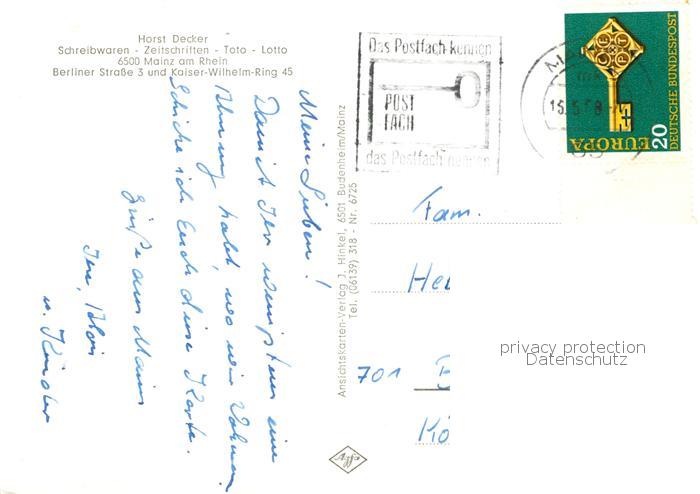 Horst Decker
Schreibwaren - Zeitschriften - Toto - Lotto
6500 Mainz am Rhein
Berliner Straße 3 und Kaiser-Wilhelm-Ring 45
Meine Lieben!
Damit Ihr wenigstens eine
Ahnung habt, wo wir wohnen
schicke ich Euch diese Karte.
Grüße aus Mainz
u. Kinder
Ansichtskarten-Verlag J. Hinkel, 6501 Budenheim/Mainz
Tel. (06139) 318 - Nr. 6725
Das Postfach kennen
POST
FACH
das Postfach nennen
15.5.68
EUROPA
20
DEUTSCHE BUNDESPOST
CEPT
Fam.
701
privacy protection
Datenschutz
Agfa